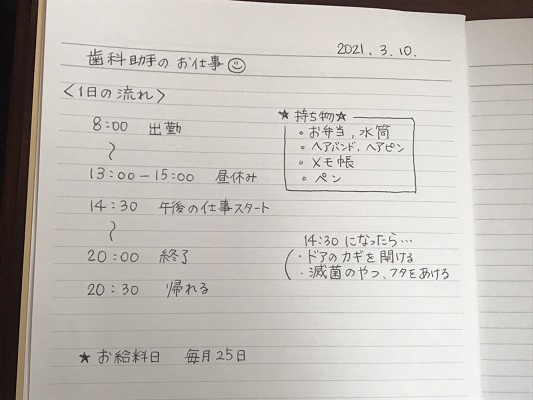 2021.3.10.
歯科助手のお仕事☺
〈1日の流れ〉
8:00 出勤
〜
13:00-15:00 昼休み
14:30 午後の仕事スタート
〜
20:00 終了
20:30 帰れる
★持ち物★
・お弁当,水筒
・ヘアバンド,ヘアピン
・メモ帳
・ペン
14:30になったら…
・ドアのカギを開ける
・滅菌のやつ、フタをあける
★お給料日 毎月25日